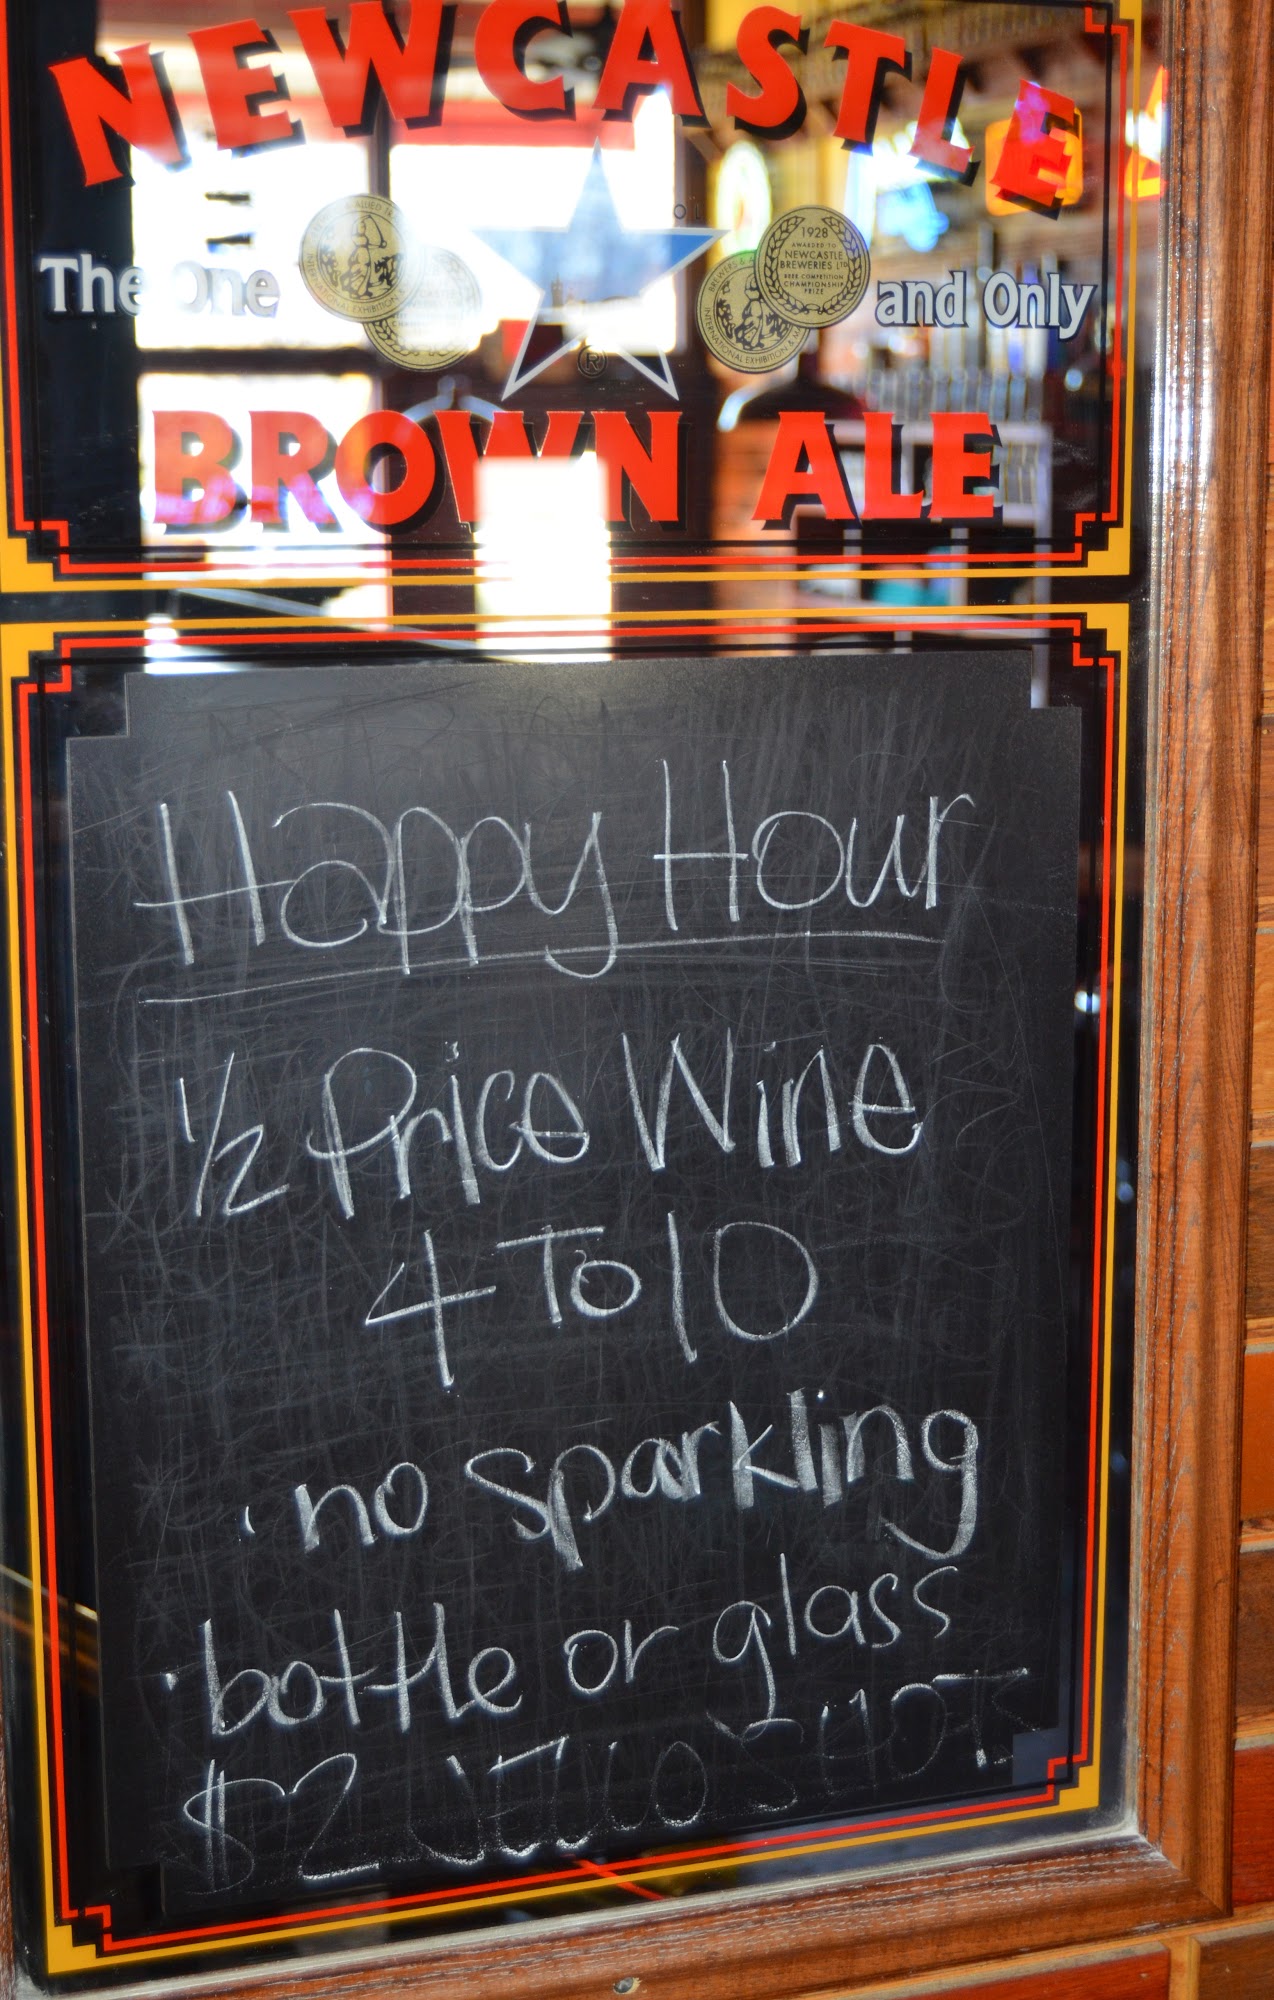 NEWCASTLE
The One and Only
1928
AWARDED TO
NEWCASTLE
BREWERIES LTD
BEER COMPETITION
CHAMPIONSHIP
PRIZE
INTERNATIONAL EXHIBITION
®
BROWN ALE
Happy Hour
1/2 Price Wine
4 To 10
· no sparkling
· bottle or glass
$2 SHOTS